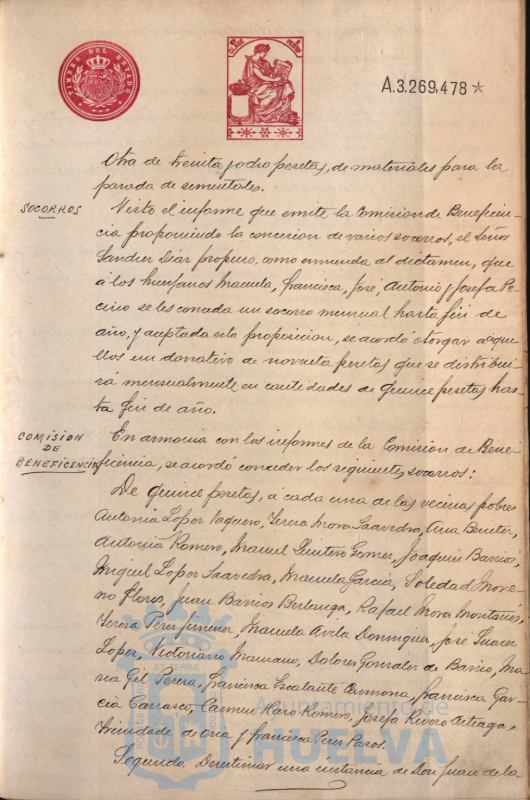 TIMBRE DEL ESTADO
A.3.269,478*
Otra de treinta y ocho pesetas, de materiales para la
parada de sementales.
SOCORROS
Visto el informe que emite la Comisión de Beneficen-
cia proponiendo la concesion de varios socorros, el Señor
Sanchez Diaz propuso, como enmienda al dictamen, que
á los huerfanos Manuela, Francisca, José, Antonio y Josefa Pe-
rino se les conceda un socorro mensual hasta fin de
año, y aceptada esta proposicion, se acordó otorgar á aque-
llos un donativo de noventa pesetas que se distribui-
rá mensualmente en cantidades de quince pesetas has-
ta fin de año.
COMISION
DE
BENEFICENCIA
En armonia con los informes de la Comision de Bene-
ficencia, se acordó conceder los siguientes socorros:
De quince pesetas, á cada una de las vecinas pobres
Antonia Lopez Vaquero, Teresa Mora Saavedra, Ana Benitez,
Antonia Romero, Manuel Quintero Gomez, Joaquin Barrios,
Miguel Lopez Saavedra, Manuela Garcia, Soledad More-
no Flores, Juan Barrios Berlanga, Rafael Mora Montañes,
Teresa Perez Jimenez, Manuela Avila Dominguez, José Suarez
Lopez, Victoriano Manzano, Dolores Gonzalez de Barrios, Ma-
ria Gil Perera, Francisca Escalante Carmona, Francisca Gar-
cia Carrasco, Carmen Haro Romero, Josefa Rivero Arteaga,
Trinidad de Oria y Francisca Perez Paros.
Segundo. Desestimar una instancia de Don Juan de la
Ayuntamiento de
HUELVA